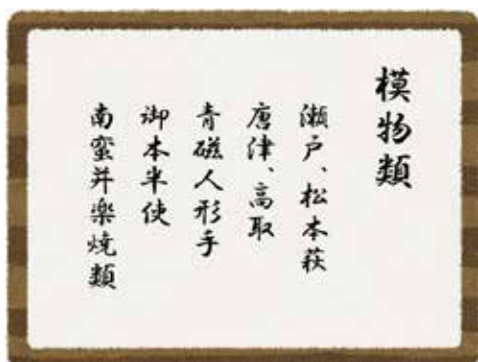 模物類
瀬戸、松本萩
唐津、高取
青磁人形手
御本半使
南蛮并楽焼類